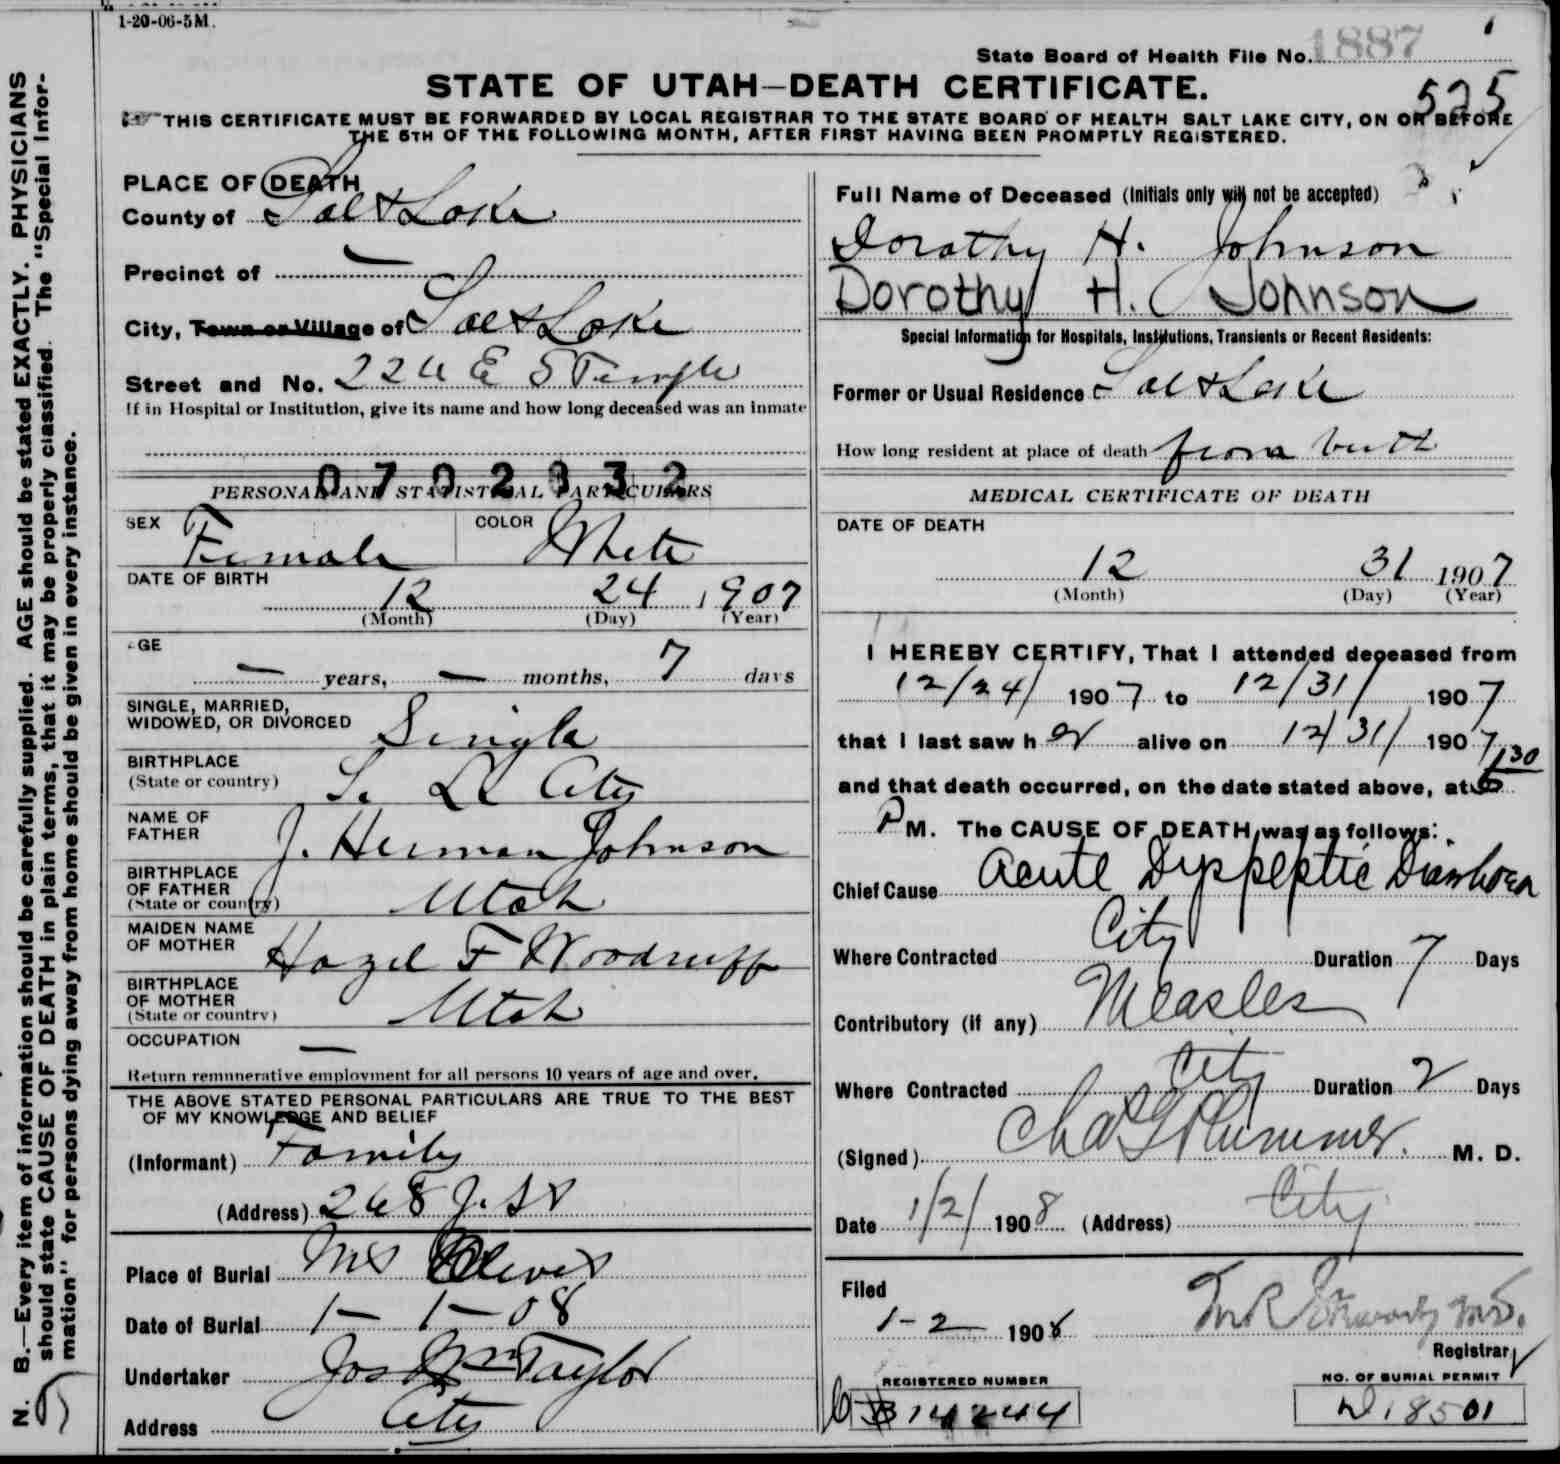 1-20-06-5M.
State Board of Health File No. 1887
STATE OF UTAH—DEATH CERTIFICATE.
525
THIS CERTIFICATE MUST BE FORWARDED BY LOCAL REGISTRAR TO THE STATE BOARD OF HEALTH SALT LAKE CITY, ON OR BEFORE
THE 5TH OF THE FOLLOWING MONTH, AFTER FIRST HAVING BEEN PROMPTLY REGISTERED.
N. B.—Every item of information should be carefully supplied. AGE should be stated EXACTLY. PHYSICIANS
should state CAUSE OF DEATH in plain terms, that it may be properly classified. The "Special Infor-
mation" for persons dying away from home should be given in every instance.
PLACE OF DEATH
County of Salt Lake
Precinct of —
City, Town or Village of Salt Lake
Street and No. 226 E S Temple
If in Hospital or Institution, give its name and how long deceased was an inmate
0702332
PERSONAL AND STATISTICAL PARTICULARS
SEX Female COLOR White
DATE OF BIRTH
12 24 1907
(Month) (Day) (Year)
AGE
— years, — months, 7 days
SINGLE, MARRIED,
WIDOWED, OR DIVORCED Single
BIRTHPLACE
(State or country) S. L. City
NAME OF
FATHER J. Herman Johnson
BIRTHPLACE
OF FATHER
(State or country) Utah
MAIDEN NAME
OF MOTHER Hazel F Woodruff
BIRTHPLACE
OF MOTHER
(State or country) Utah
OCCUPATION —
Return remunerative employment for all persons 10 years of age and over.
THE ABOVE STATED PERSONAL PARTICULARS ARE TRUE TO THE BEST
OF MY KNOWLEDGE AND BELIEF
(Informant) Family
(Address) 268 J. St
Place of Burial Mt Olivet
Date of Burial 1-1-08
Undertaker Jos Wm Taylor
Address City
Full Name of Deceased (Initials only will not be accepted)
Dorathy H. Johnson
Dorothy H. Johnson
Special Information for Hospitals, Institutions, Transients or Recent Residents:
Former or Usual Residence Salt Lake
How long resident at place of death from birth
MEDICAL CERTIFICATE OF DEATH
DATE OF DEATH
12 31 1907
(Month) (Day) (Year)
I HEREBY CERTIFY, That I attended deceased from
12/24/ 1907 to 12/31/ 1907
that I last saw her alive on 12/31/ 1907,
and that death occurred, on the date stated above, at 30
PM. The CAUSE OF DEATH was as follows:
Chief Cause Acute Dyspeptic Diarrhoea
Where Contracted City Duration 7 Days
Contributory (if any) Measles
Where Contracted City Duration 2 Days
(Signed) Chas G Plummer. M. D.
Date 1/2/ 1908 (Address) City
Filed
1-2 1908
Registrar
REGISTERED NUMBER
NO. OF BURIAL PERMIT
18501